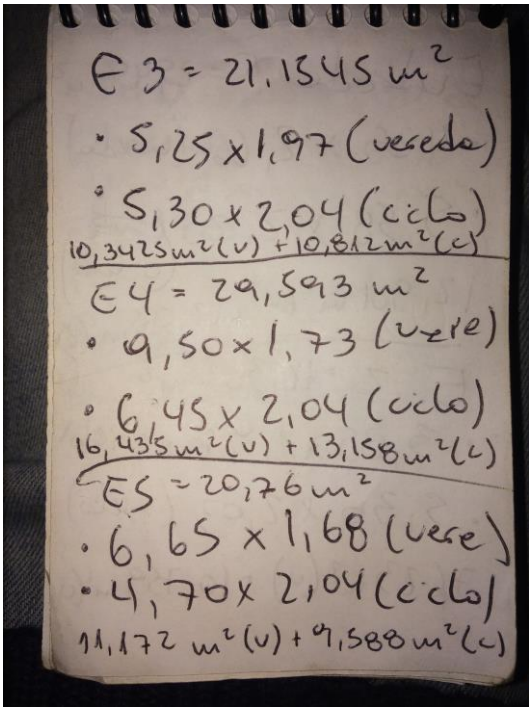 E3 = 21,1545 m²
• 5,25 x 1,97 (vereda)
• 5,30 x 2,04 (ciclo)
10,3425 m² (v) + 10,812 m² (c)
E4 = 29,593 m²
• 9,50 x 1,73 (vere)
• 6,45 x 2,04 (ciclo)
16,435 m² (v) + 13,158 m² (c)
E5 = 20,76 m²
• 6,65 x 1,68 (vere)
• 4,70 x 2,04 (ciclo)
11,172 m² (v) + 9,588 m² (c)